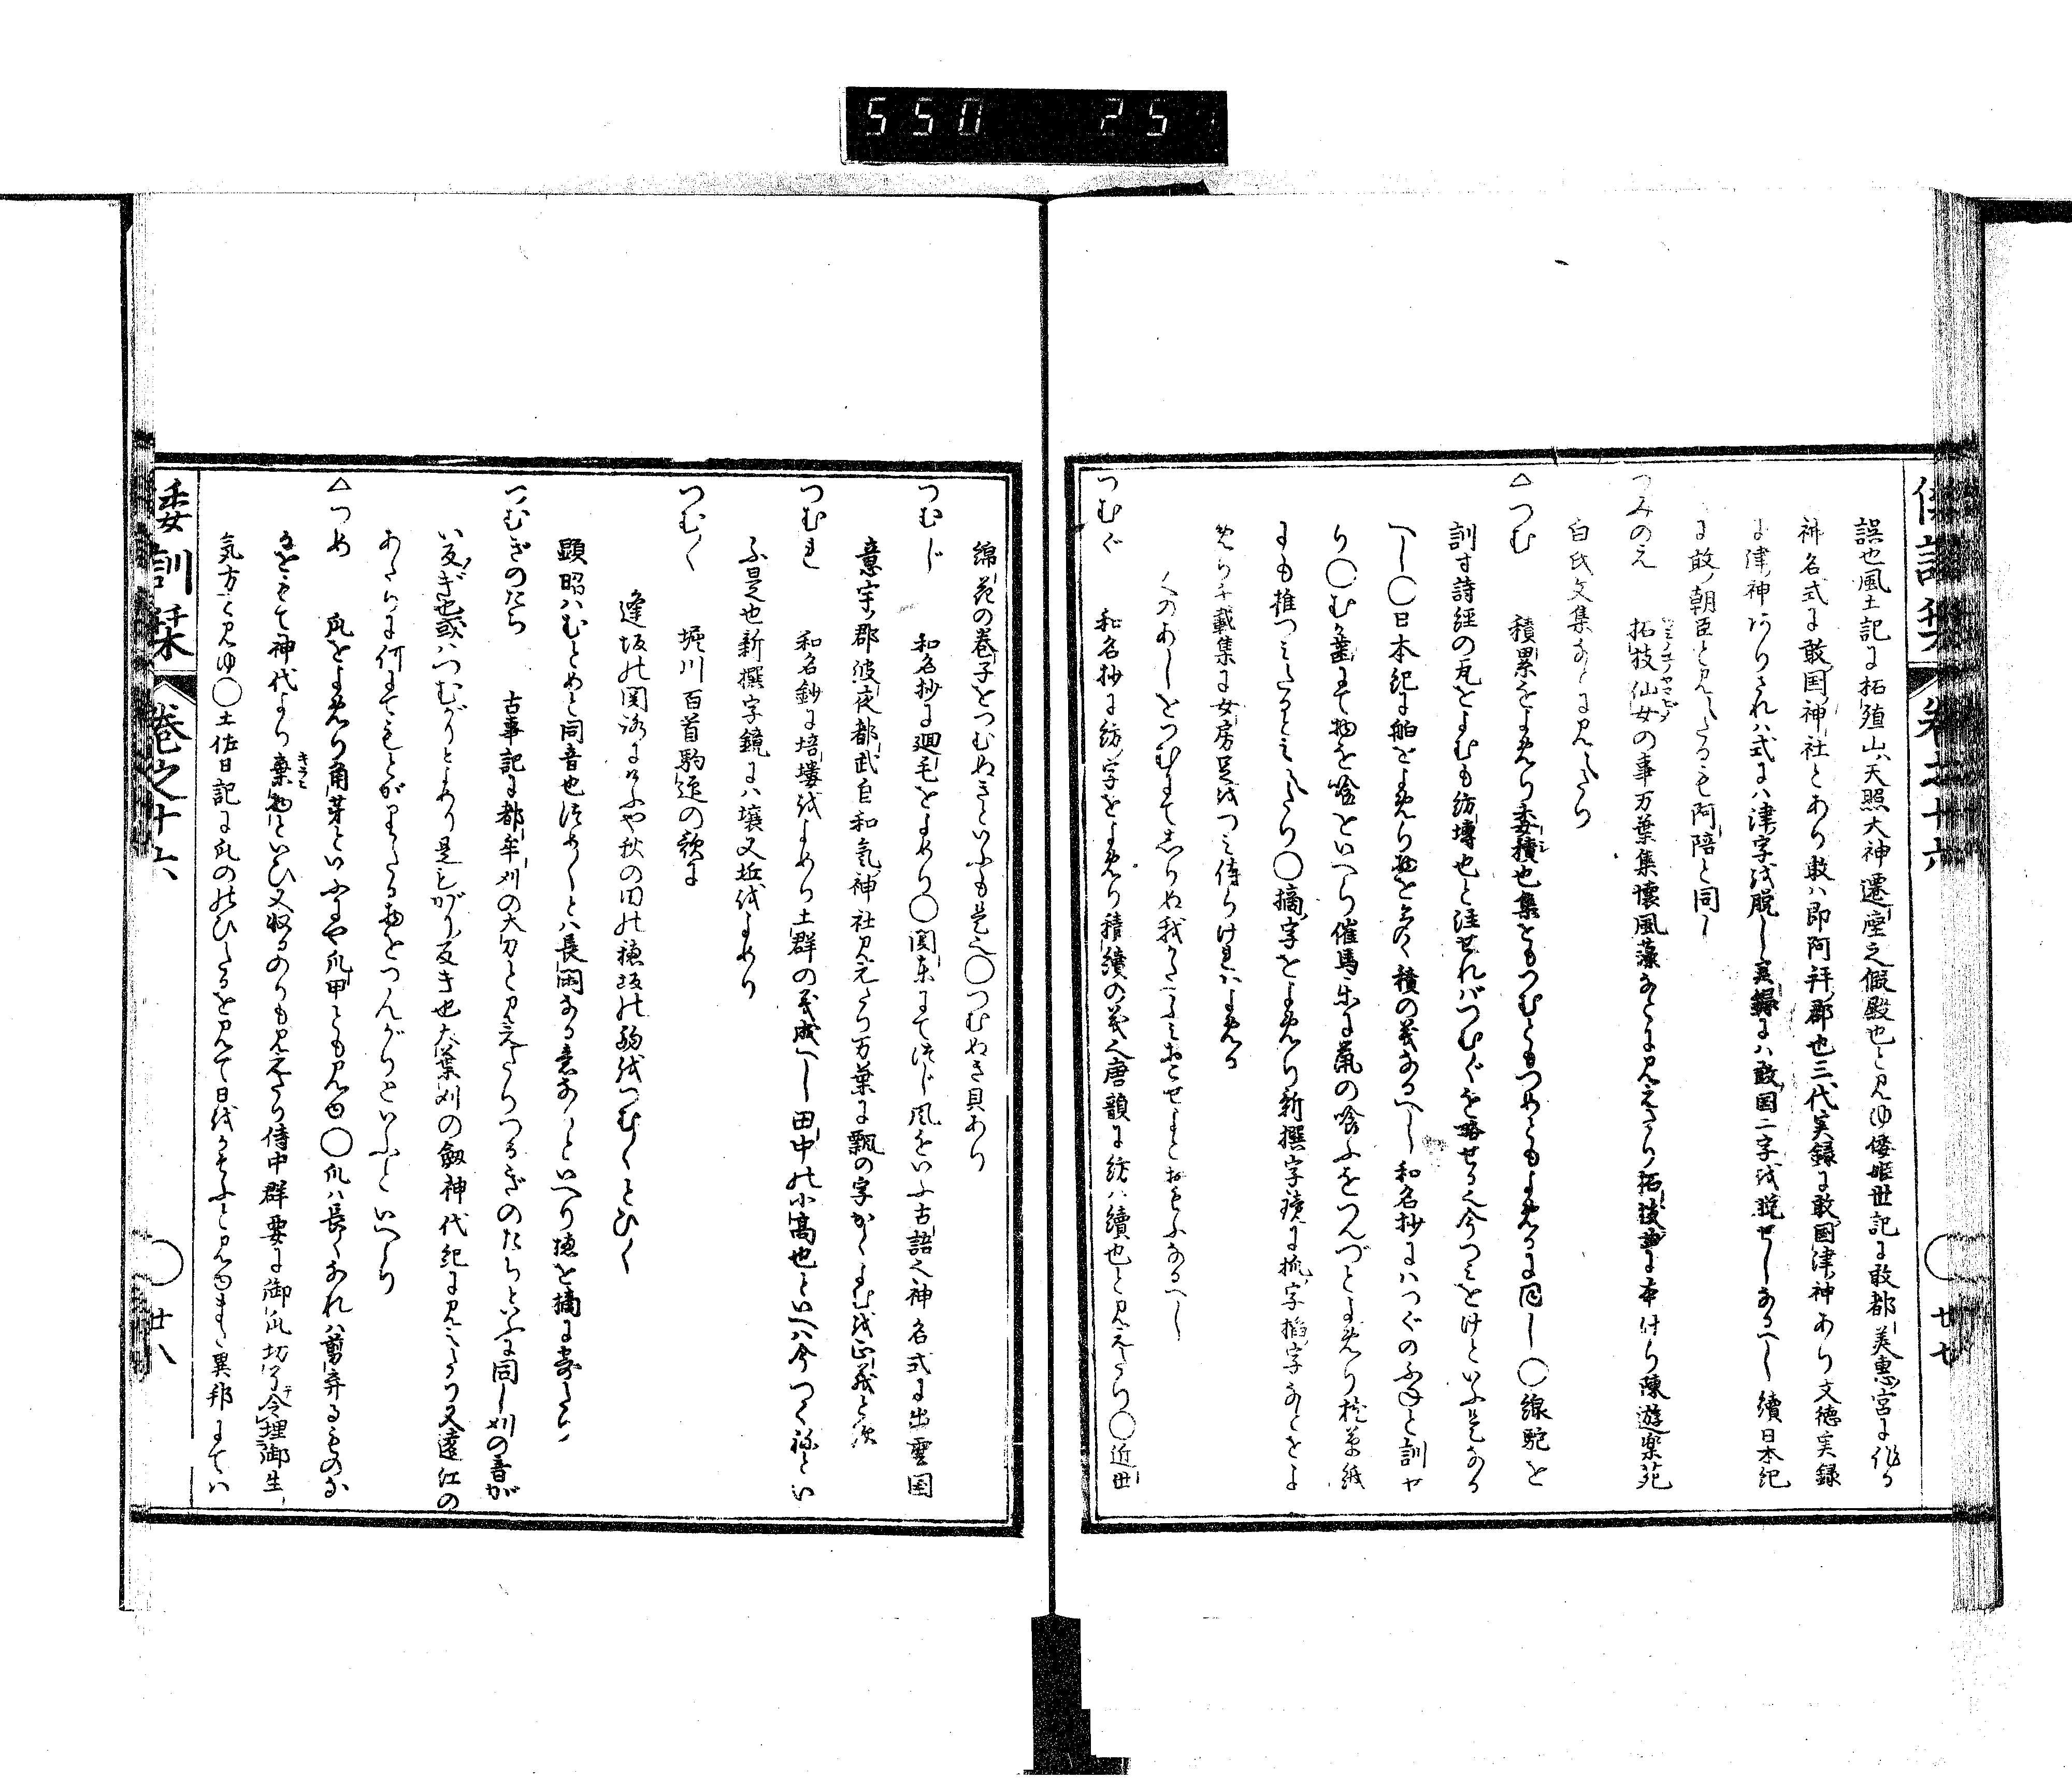 550 25
倭訓栞 巻之十六 廿七
誤也風土記に拓殖山天照大神遷座之假殿也と見ゆ倭姫世記に敢都美惠宮に作る
神名式に敢国神社とあり敢ハ即阿拝郡也三代実録に敢国津神あり文徳実録
に津神ありされハ式にハ津字を脱し実録にハ敢国二字を脱せしなるへし續日本紀
に敢朝臣と見えたるも阿陪と同し
つみのえ 拓枝仙女の事万葉集懐風藻なとに見えたり拓枝に本付り陳遊楽苑
白氏文集なとに見えたり
△つむ 積累をよめり委積也集ともつむともつめともよめるに同し〇線駝を
訓す詩経の瓦をよむも紡塼也と注せれバつむぐを略せる也今つミをけといふ是なる
へし〇日本紀に舶をよめり物を多く積の義なるへし和名抄にハつぐのふねと訓せ
り〇むく歯にて物を喰といへり催馬楽に鼠の喰ふをつんづとよめり枕草紙
にも推つミたるとミえたり〇摘字をよめり新撰字鏡に抓字搯字なとをよ
めり千載集に女房足をつミ侍りけれハよめる
人のあしをつむにてしりぬ我かたへふミおこせよとおもふなるへし
つむぐ 和名抄に紡字をよめり積續の義也唐韻に紡ハ續也と見えたり〇近世
綿花の巻子をつむぬきといふも是也〇つむぬき貝あり
つむじ 和名抄に廻毛をよめり〇関東にて辻風をいふ古語也神名式に出雲国
意宇郡波夜都武自和氣神社見えたり万葉に飄の字かくよむを正義とす
つむれ 和名鈔に培塿をよめり土群の義成へし田中の小高也といへハ今つく祢とい
ふ是也新撰字鏡にハ壌又坵をよめり
つむく 堀川百首駒迎の歌に
逢坂の関路にけふや秋の田の穂坂の駒をつむくとひく
顕昭ハむとめと同音也つめくとハ長閑なる意なりといへり穂を摘に寄たり
つむぎのたち 古事記に都牟刈の大刀と見えたりつるぎのたちといふに同し刈の音が
い反ぎ也或ハつむがりとよめり是もがり反き也大葉刈の劔神代紀に見えたり又遠江の
あたりに何にてもとがりたる物をつんがりといふといへり
△つめ 爪をよめり角芽といふにや爪甲とも見ゆ〇爪ハ長くなれハ剪弃るものな
るをもて神代より棄物といひ又収るのりも見えたり侍中群要に御爪坊了令理御生
気方と見ゆ〇土佐日記に爪のゝひたるを見て日をかそふと見ゆまた異邦にてハ
倭訓栞 巻之十六 廿八